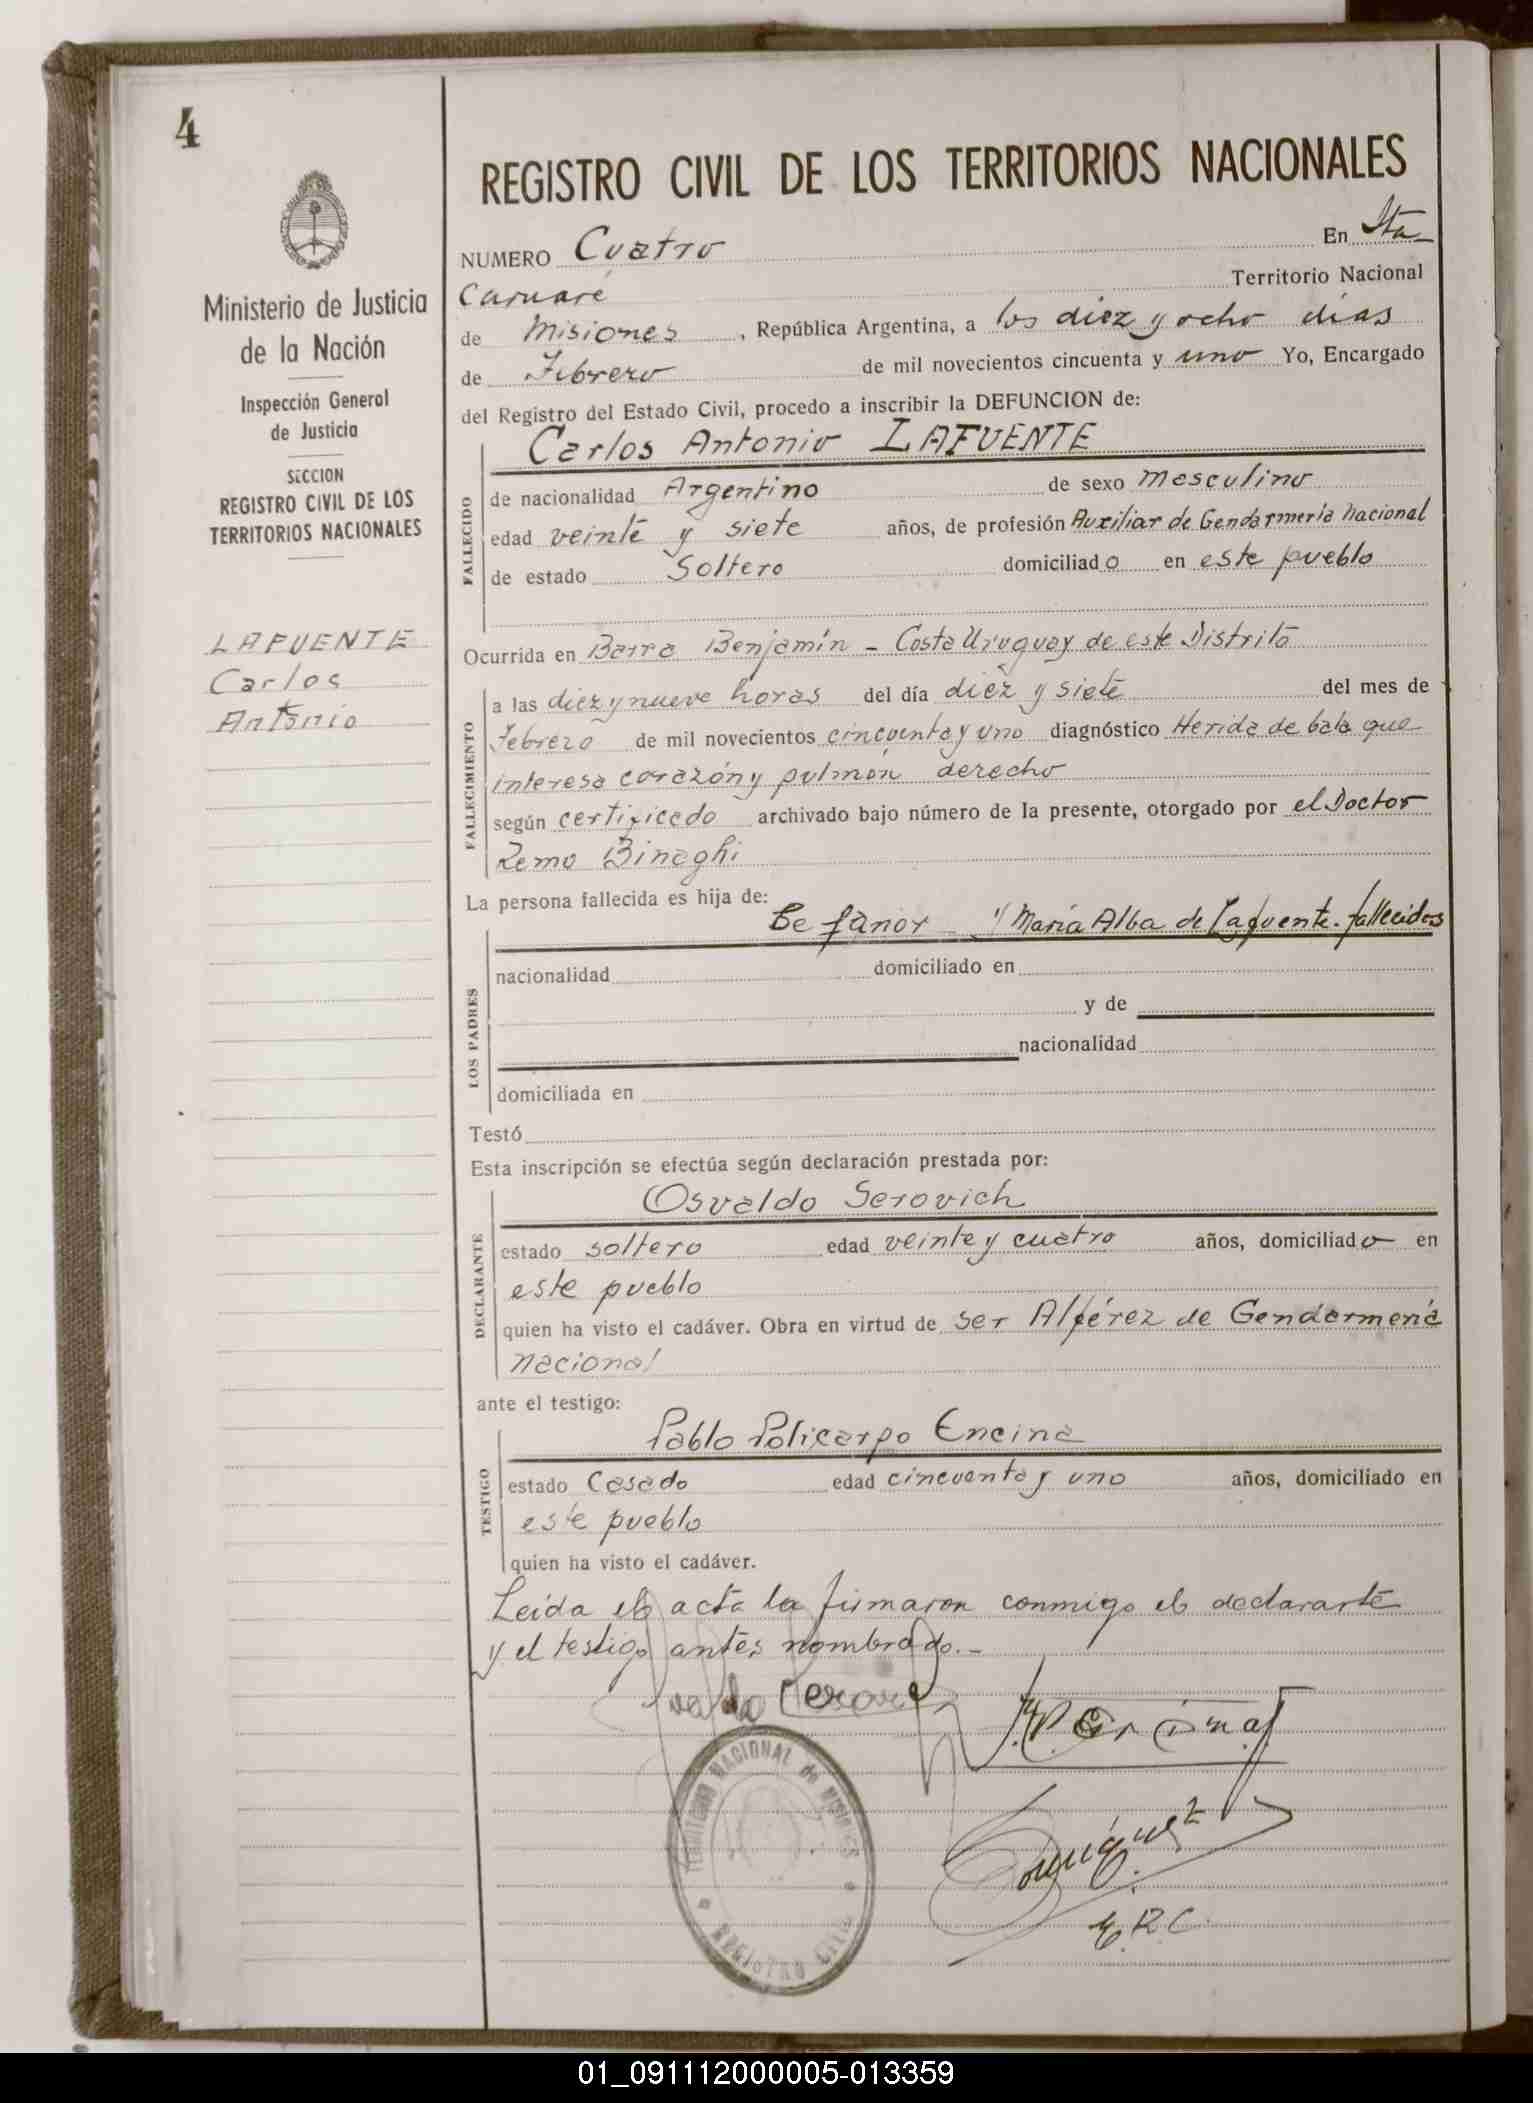 4
REGISTRO CIVIL DE LOS TERRITORIOS NACIONALES
NUMERO Cuatro En Sta
Caruaré Territorio Nacional
de Misiones, República Argentina, a los diez y ocho días
de Febrero de mil novecientos cincuenta y uno Yo, Encargado
del Registro del Estado Civil, procedo a inscribir la DEFUNCION de:
Carlos Antonio LAFUENTE
FALLECIDO
de nacionalidad Argentino de sexo masculino
edad veinte y siete años, de profesión Auxiliar de Gendarmeria nacional
de estado Soltero domiciliado en este pueblo
Ocurrida en Barra Benjamín - Costa Uruguay de este Distrito
FALLECIMIENTO
a las diez y nueve horas del día diez y siete del mes de
Febrero de mil novecientos cincuenta y uno diagnóstico Herida de bala que
interesa corazón y pulmón derecho
según certificado archivado bajo número de la presente, otorgado por el Doctor
Remo Binaghi
La persona fallecida es hija de:
LOS PADRES
Befanor y María Alba de Lafuente. fallecidos
nacionalidad domiciliado en
y de
nacionalidad
domiciliada en
Testó
Esta inscripción se efectúa según declaración prestada por:
DECLARANTE
Osvaldo Serovich
estado soltero edad veinte y cuatro años, domiciliado en
este pueblo
quien ha visto el cadáver. Obra en virtud de ser Alférez de Gendarmeria
nacional
ante el testigo:
TESTIGO
Pablo Policarpo Encina
estado Casado edad cincuenta y uno años, domiciliado en
este pueblo
quien ha visto el cadáver.
Leída el acta la firmaron conmigo el declarante
y el testigo antes nombrado.-
E.R.C.
TERRITORIO NACIONAL de MISIONES
REGISTRO CIVIL
Ministerio de Justicia
de la Nación
Inspección General
de Justicia
SECCION
REGISTRO CIVIL DE LOS
TERRITORIOS NACIONALES
LAFUENTE
Carlos
Antonio
01_091112000005-013359